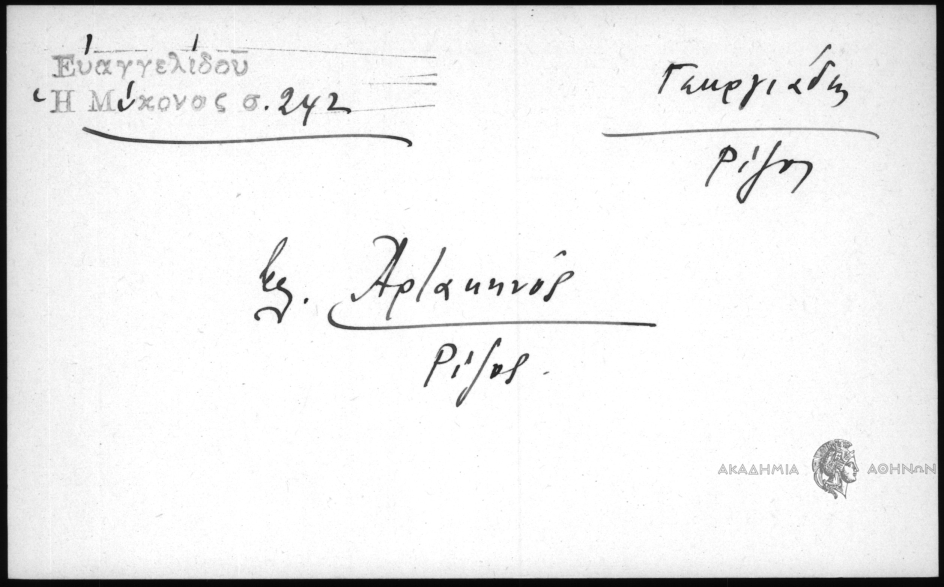 Εὐαγγελίδου
Ἡ Μύκονος σ. 242
Γεωργιάδης
Ρίζος
βλ. Αρτακηνός
Ρίζος.
ΑΚΑΔΗΜΙΑ ΑΘΗΝΩΝ